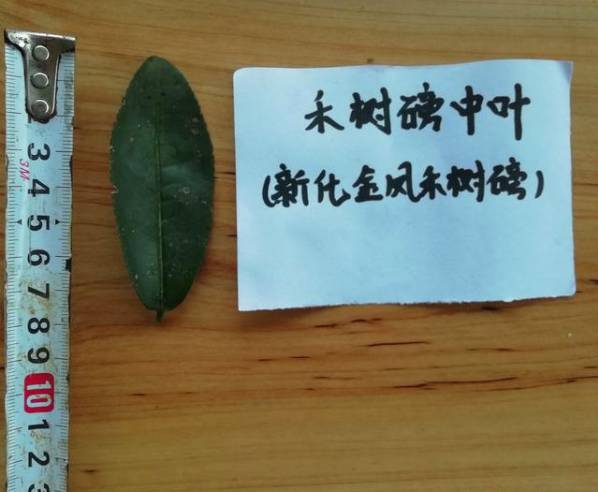 禾树磅中叶
(新化金凤禾树磅)
3M
2
3
4
5
6
7
8
9
10
1
2
3